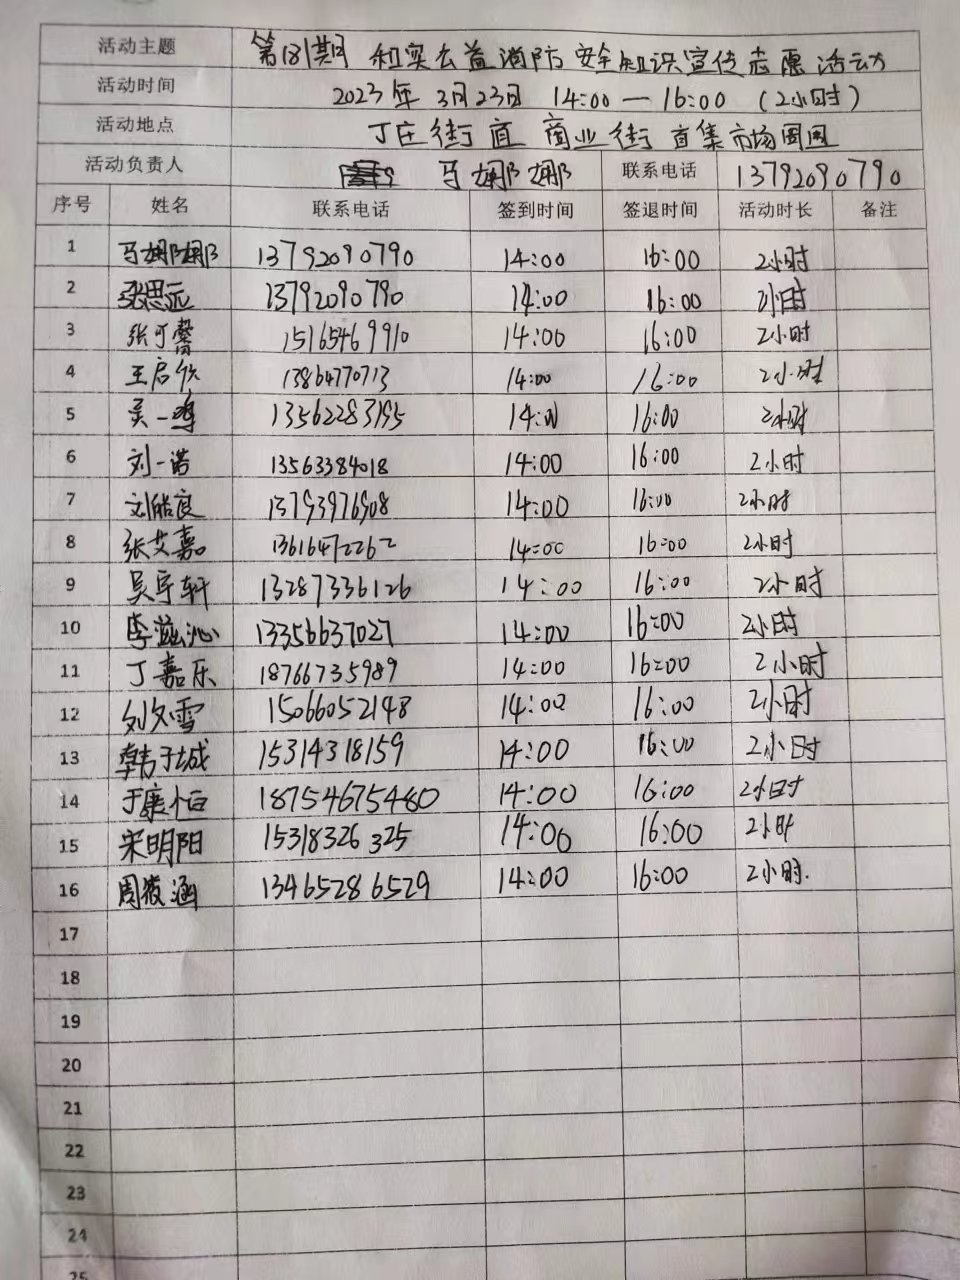 活动主题 第181期 和实公益消防安全知识宣传志愿活动
活动时间 2023年3月23日 14:00—16:00 (2小时)
活动地点 丁庄街直 商业街 直集市场周围
活动负责人 马娜娜 联系电话 13792090790
序号 姓名 联系电话 签到时间 签退时间 活动时长 备注
1 马娜娜 13792090790 14:00 16:00 2小时
2 张思远 13792090790 14:00 16:00 2小时
3 张可馨 15165469910 14:00 16:00 2小时
4 王启 13864770713 14:00 16:00 2小时
5 吴一鸣 13562283195 14:00 16:00 2小时
6 刘一诺 13563384018 14:00 16:00 2小时
7 刘皓良 13793976908 14:00 16:00 2小时
8 张艾嘉 13616472262 14:00 16:00 2小时
9 吴宇轩 13287336126 14:00 16:00 2小时
10 李滋沁 13356637027 14:00 16:00 2小时
11 丁嘉乐 18766735989 14:00 16:00 2小时
12 刘文雪 15066052148 14:00 16:00 2小时
13 韩于城 15314318159 14:00 16:00 2小时
14 于康恒 18754675480 14:00 16:00 2小时
15 宋明阳 15318326325 14:00 16:00 2小时
16 周筱涵 13465286529 14:00 16:00 2小时.
17
18
19
20
21
22
23
24
25